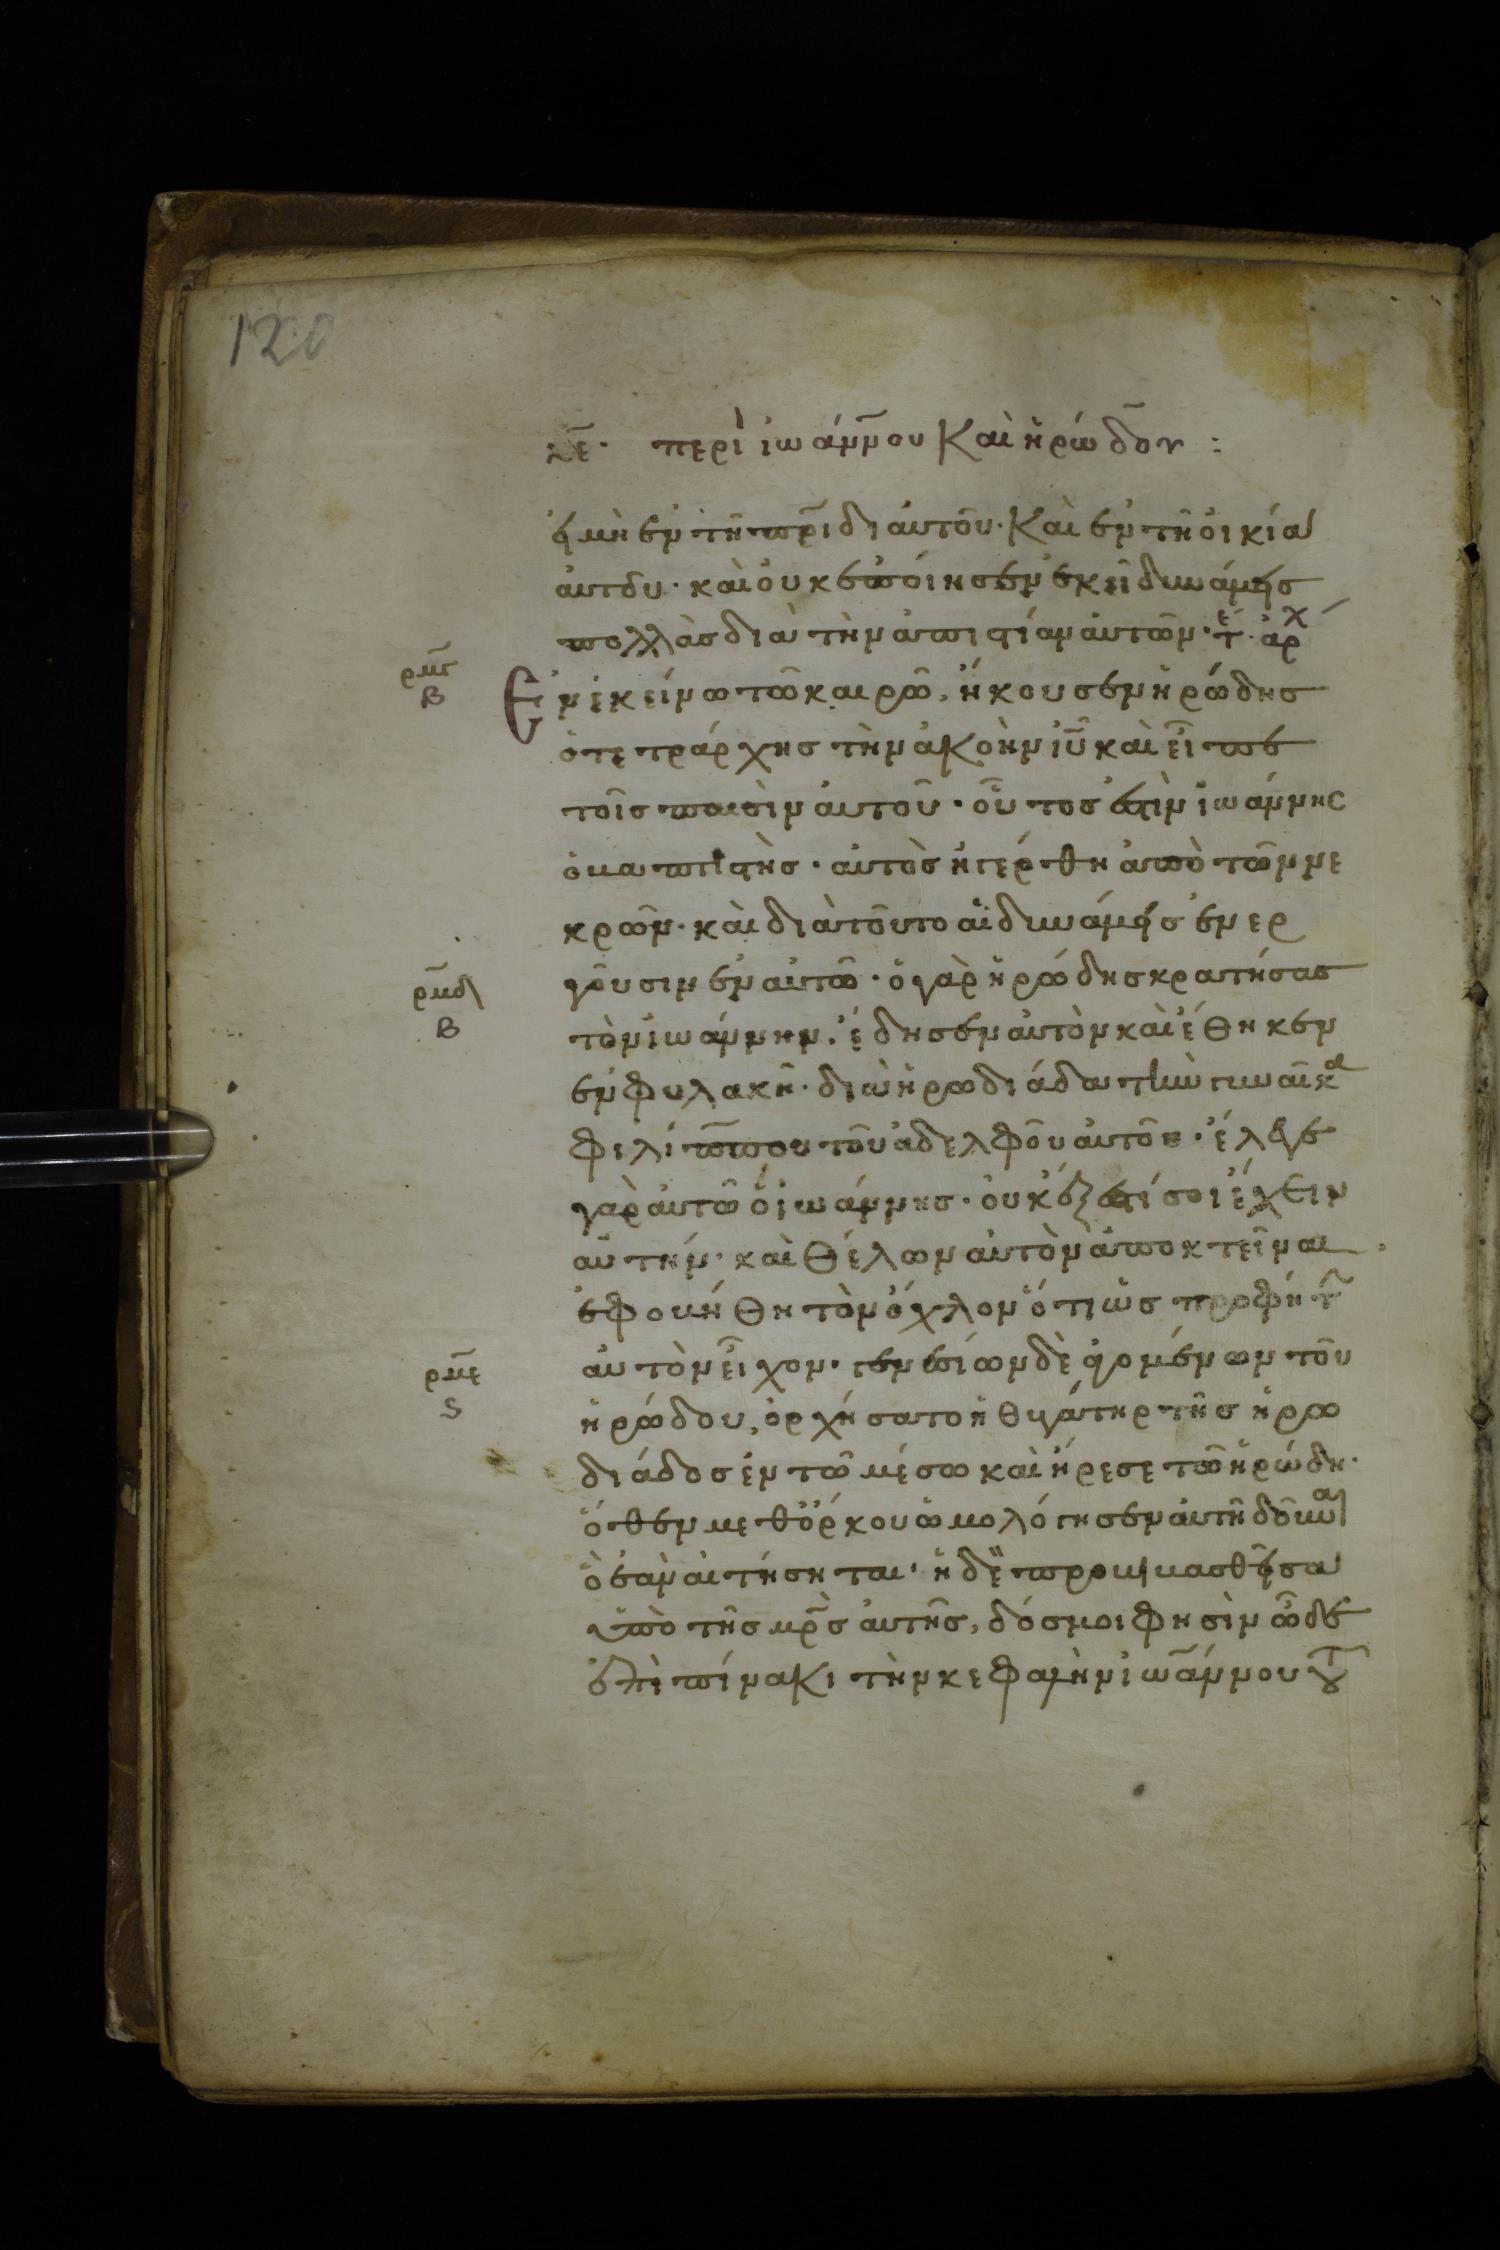 120
κε· περὶ ἰωάννου Καὶ ἡρώδου :
εἰ μὴ ἐν τῆ πρ̅ιδι αὐτοῦ· Καὶ ἐν τῆ οἰκία
αὐτοῦ· καὶ οὐκ ἐποίησεν ἐκεῖ δυνάμεις
πολλὰς διὰ τὴν ἀπιστίαν αὐτῶν· τε· ἀρχ
ρμγ
Β
Ἐν ἐκείνω τῶ καιρῶ, ἤκουσεν ἡρώδης
ὁ τετράρχης τὴν ἀκοὴν ἰ̅υ̅ καὶ εἶπε
τοῖς παισὶν αὐτοῦ· οὗτος ἐστὶν ἰωάννης
ὁ βαπτιστὴς· αὐτὸς ἠγέρθη ἀπὸ τῶν νε
κρῶν· καὶ διὰ τοῦτο αἱ δυνάμεις ἐνερ
ρμδ
Β
γοῦσιν ἐν αὐτῶ· ὁ γὰρ ἡρώδης κρατήσας
τὸν ἰωάννην, ἔδησεν αὐτὸν καὶ ἔθηκεν
ἐν φυλακῆ· διὰ ἡρωδιάδα τὴν γυναῖκα
φιλίππου τοῦ ἀδελφοῦ αὐτοῦ· ἔλεγε
γὰρ αὐτῶ ὁ ἰωάννης· οὐκ ἔξεστί σοι ἔχειν
αὐτήν· καὶ θέλων αὐτὸν ἀποκτεῖναι
ἐφοβήθη τὸν ὄχλον ὅτι ὡς προφήτ
αὐτὸν εἶχον· γενεσίων δὲ ἀγομένων τοῦ
ρμε
ς
ἡρώδου, ὀρχήσατο ἡ θυγάτηρ τῆς ἡρω
διάδος ἐν τῶ μέσω καὶ ἤρεσε τῶ ἡρώδη·
ὅθεν μεθ ὅρκου ὡμολόγησεν αὐτῆ δοῦναι
ὃ ἐὰν αἰτήσηται· ἡ δὲ προβιβασθεῖσα
ὑπὸ τῆς μρ̅ς αὐτῆς, δός μοι φησὶν ὧδε
ἐπὶ πίνακι τὴν κεφαλὴν ἰωάννου τοῦ